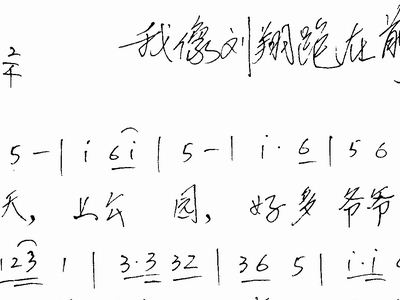 我像刘翔跑在前
2/4
5 — | i 6i | 5 — | i· 6 | 5 6
天, 上公 园, 好多 爷爷
123 1 | 3·3 32 | 36 5 | i·i